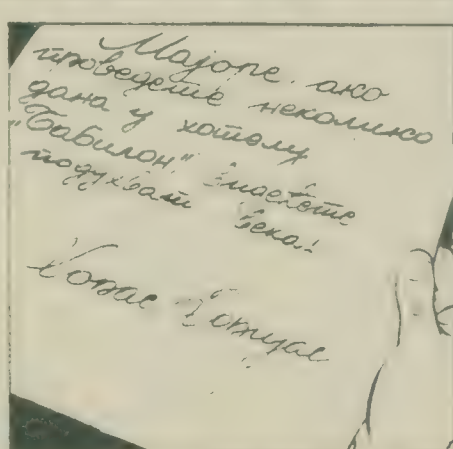 Мајоре, ако
проведете неколико
дана у хотелу
„Бабилон" имаћете
подухват века!